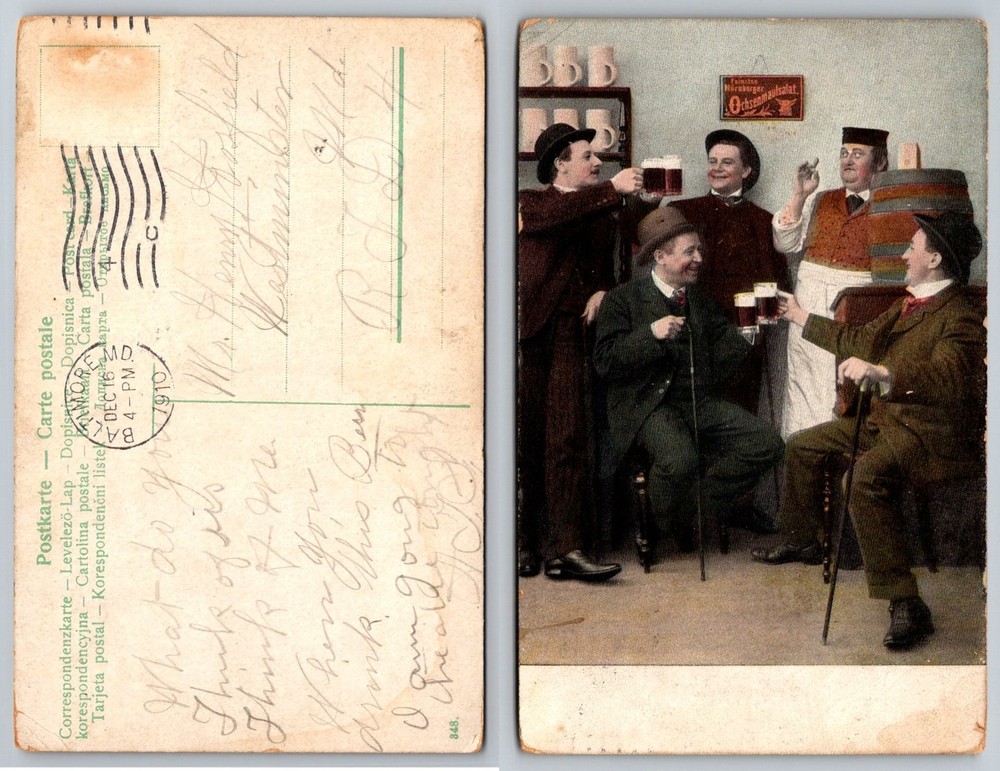 Postkarte — Carte postale
Correspondenzkarte – Levelező-Lap – Dopisnica – Dopisnica – Post card – Karta
korespondencyjna – Cartolina postale – Carta postala – Brefkort
Tarjeta postal – Korespondenční listek – Дописна карта – Открытое письмо
BALTIMORE MD.
DEC 16
4-PM
1910
C
Mr. Henry
Westminster
Md.
R D 4
What do you
Think of this
Think of me
When you
drink this Beer
I am going to
348.
Feinster
Nürnberger
Ochsenmaulsalat.